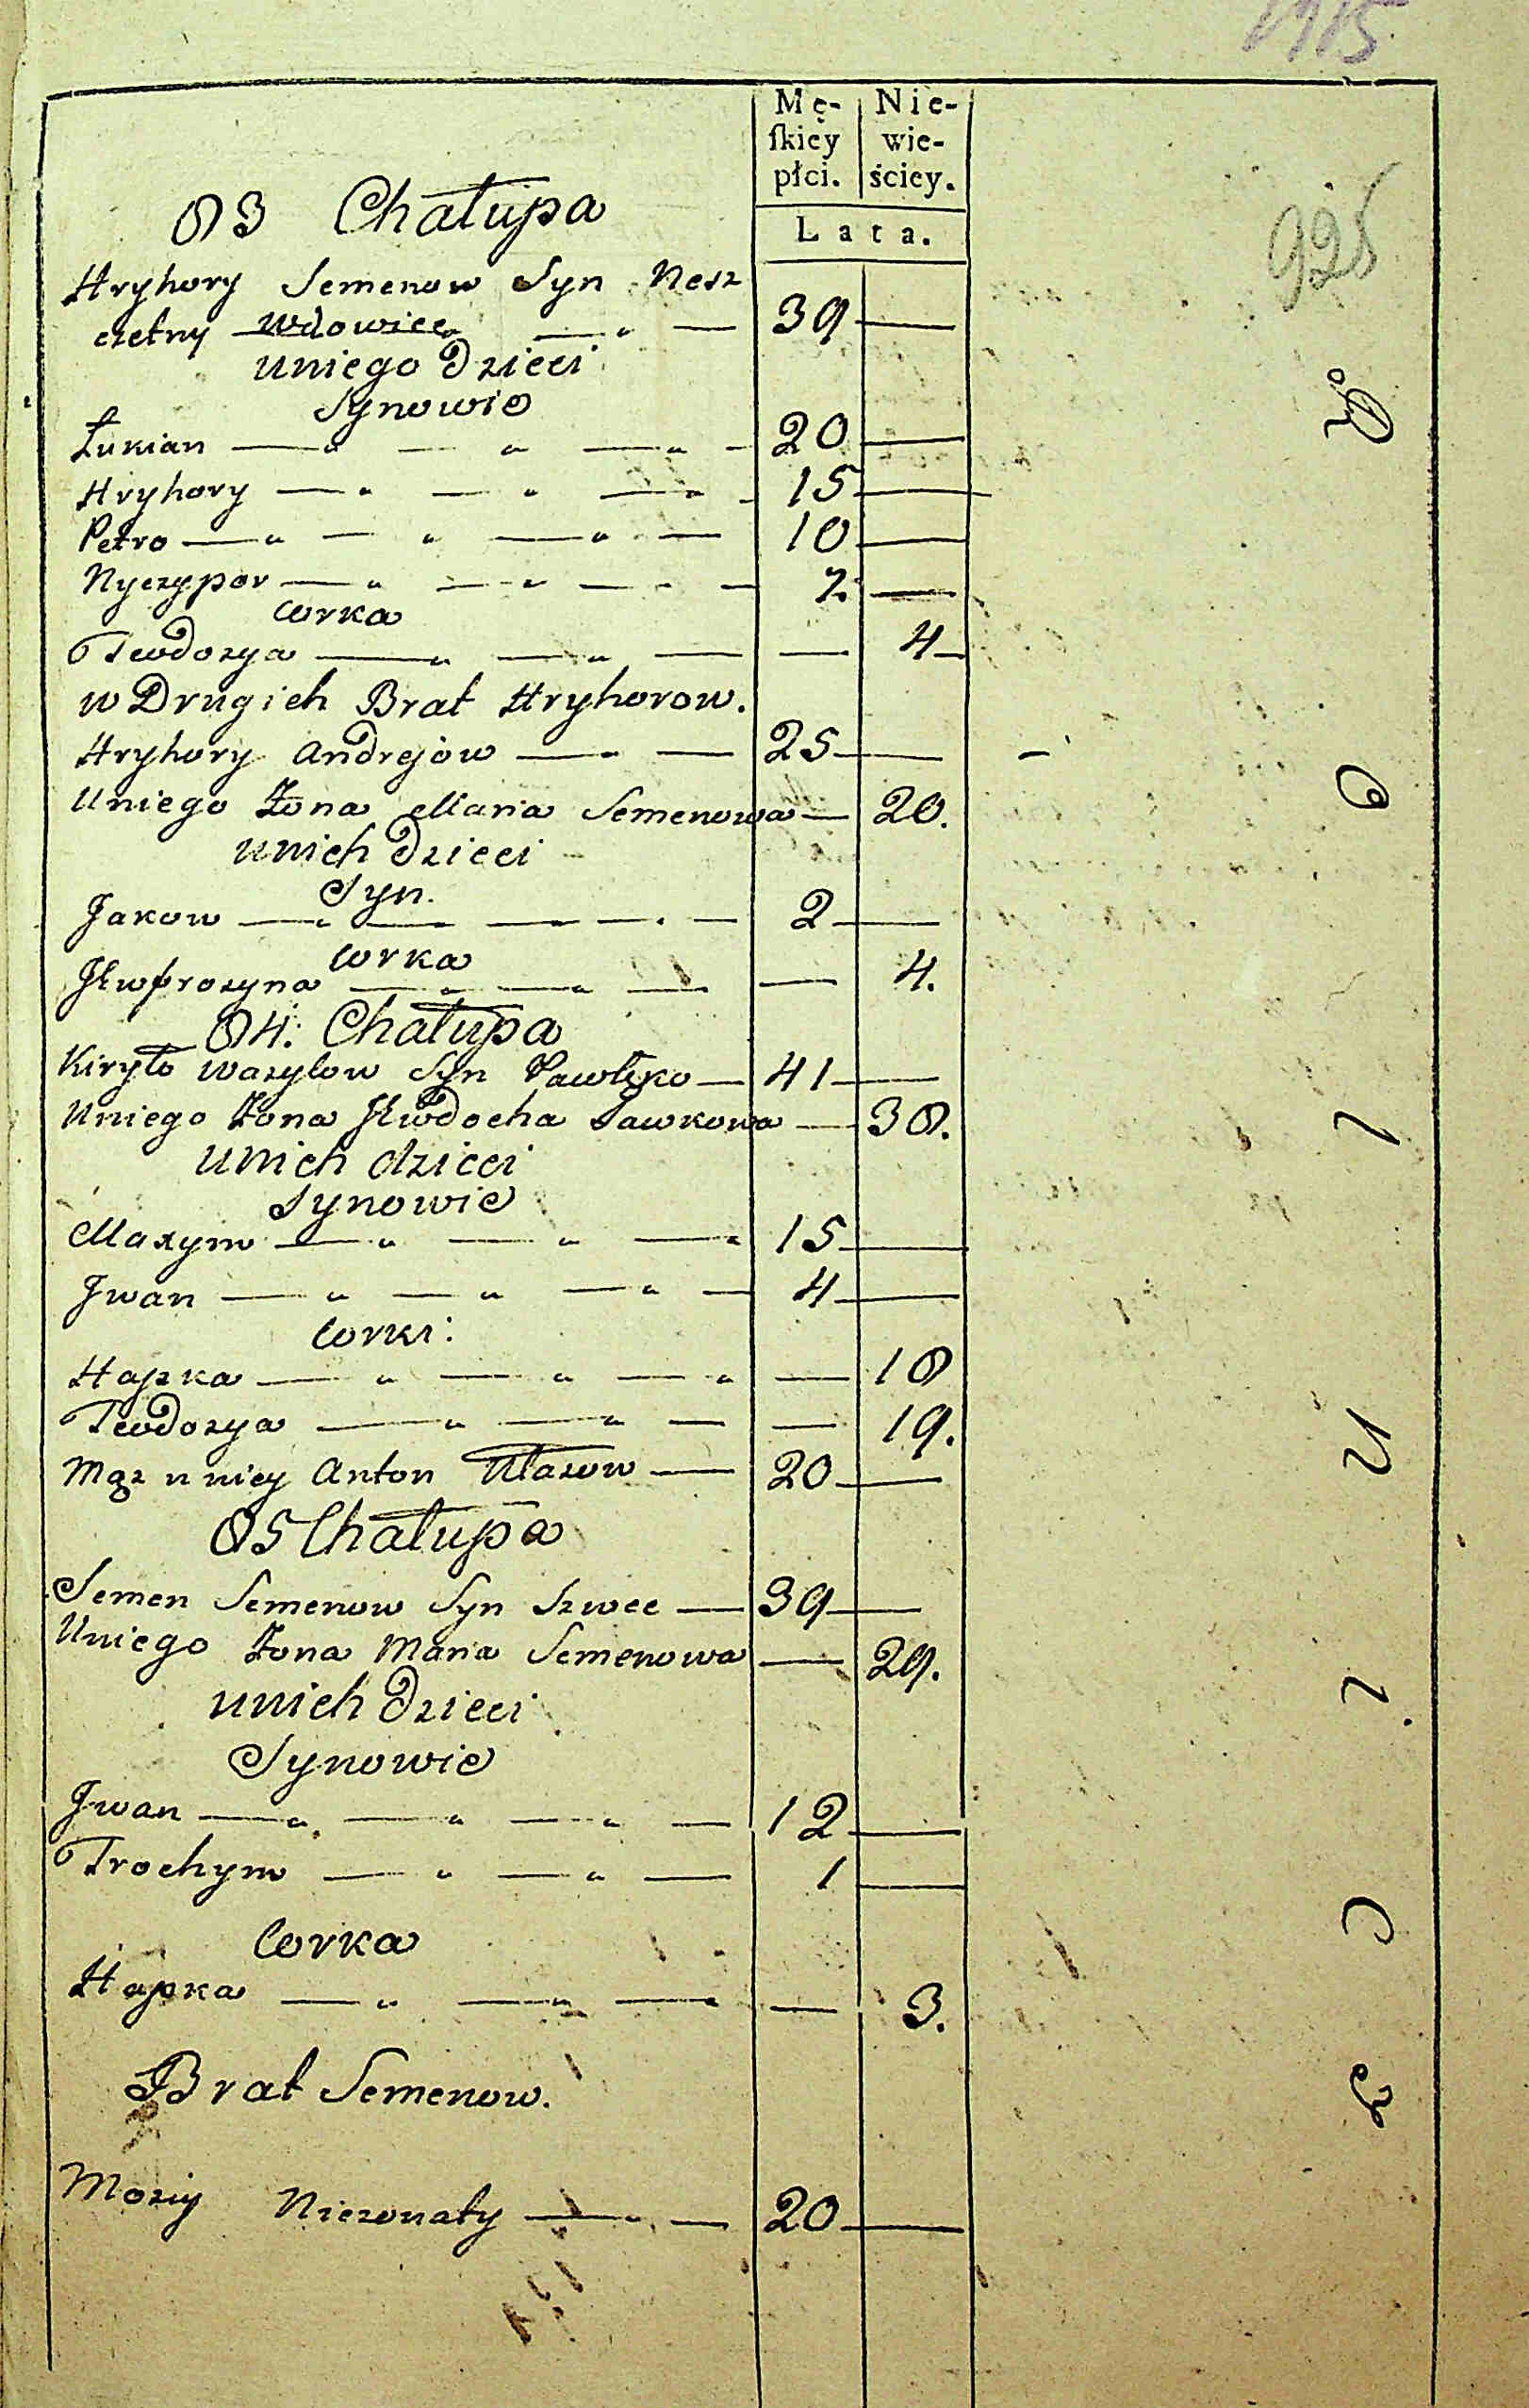 Mę- Nie-
ſkiey wie-
płci. ściey.
Lata.
925
83 Chałupa
Hryhory Semenow Syn Nesz
czetny Wdowiec — „ — 39 —
uniego Dzieci
Synowie
Łukian — „ — „ — „ — 20 —
Hryhory — „ — „ — „ — 15 —
Petro — „ — „ — „ — 10 —
Nyczypor — „ — „ — — 7. —
Corka
Teodozya — „ — „ — — 4 —
w Drugich Brat Hryhorow.
Hryhory Andrejow — „ — 25 —
Uniego Żona Maria Semenowa — 20.
unich Dzieci
Syn.
Jakow — „ — — — . — 2 —
Corka
Jewfrozyna — „ — „ — — 4.
84. Chałupa
Kiryło Wazylow Syn Pawłyko — 41 —
Uniego Żona Jewdocha Sawkowa — 38.
Unich dzieci
Synowie
Maxym — „ — „ — „ 15 —
Jwan — „ — „ — „ — 4 —
Corki:
Hapka — „ — „ — „ — 18
Teodozya — „ — „ — — 19.
Mąz u niey Anton Ułasow — 20 —
85 Chałupa
Semen Semenow Syn Szwec — 39 —
Uniego Żona Maria Semenowa — 29.
unich Dzieci
Synowie
Jwan — „ — „ — „ — 12 —
Trochym — „ — „ — 1 —
Corka
Hapka — „ — „ — „ — 3.
Brat Semenow.
Moziy Niezonaty — „ — 20 —
R o l n i c y